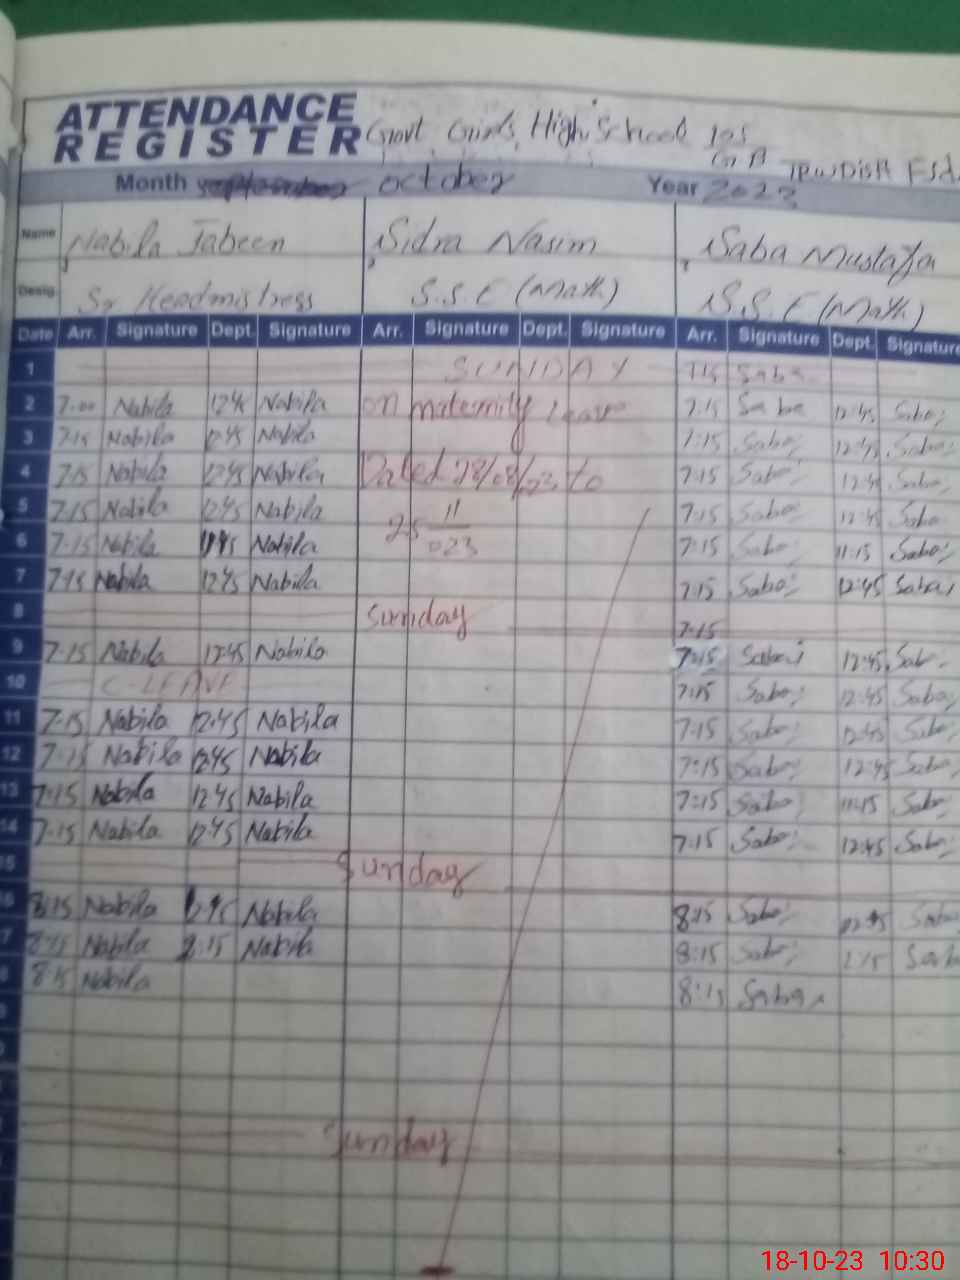 ATTENDANCE
REGISTER Govt Girls High School 105
GB
Month october Year 2023
Name Nabila Jabeen Sidra Nasim Saba Mustafa
Desig. Sr Headmistress S.S.E (Math) S.S.E (Math)
Date Arr. Signature Dept. Signature Arr. Signature Dept. Signature Arr. Signature Dept. Signature
1 SUNDAY 7:15 Saba
2 7.00 Nabila 1245 Nabila on maternity Leave 7:15 Saba 12:45 Saba
3 7:15 Nabila 1245 Nabila 7:15 Saba 12:45 Saba
4 7:15 Nabila 1245 Nabila Dated 28/08/23 to 7:15 Saba 12:45 Saba
5 7:15 Nabila 1245 Nabila 25 11 7:15 Saba 12:45 Saba
6 7-15 Nabila 1145 Nabila 023 7:15 Saba 11:15 Saba
7 7:15 Nabila 1245 Nabila 7:15 Saba 12:45 Saba
8 Sunday 7:15
9 7-15 Nabila 12:45 Nabila 7:15 Saba 12:45 Sab
10 C-LEAVE 7:15 Saba 12:45 Saba
11 7-15 Nabila 12.45 Nabila 7:15 Saba 12:45 Saba
12 7-15 Nabila 1245 Nabila 7:15 Saba 12:45 Saba
13 7-15 Nabila 1245 Nabila 7:15 Saba 11:15 Sab
14 7-15 Nabila 12:45 Nabila 7:15 Saba 12:45 Sab
15 Sunday
8:15 Nabila Nabila 8:15 Saba Saba
8:15 Nabila 2:15 Nabila 8:15 Saba 2:15 Sab
8:15 Nabila 8:15 Saba
Sunday
18-10-23 10:30